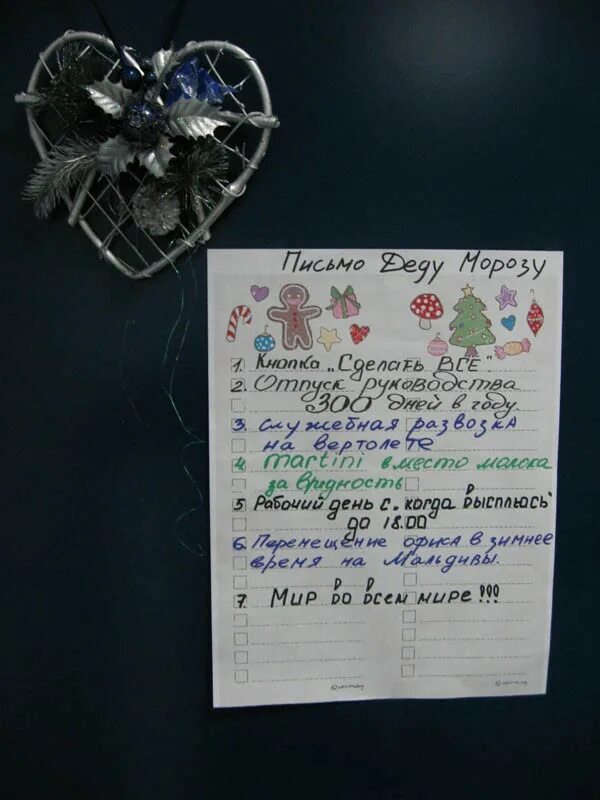 Письмо Деду Морозу
1. Кнопка „Сделать ВСЕ".
2. Отпуск руководства
300 дней в году.
3. Служебная развозка
на вертолете
4. martini вместо молока
за вредность
5 Рабочий день с „когда высплюсь"
до 18.00
6. Перемещение офиса в зимнее
время на Мальдивы.
7. Мир во всем мире!!!